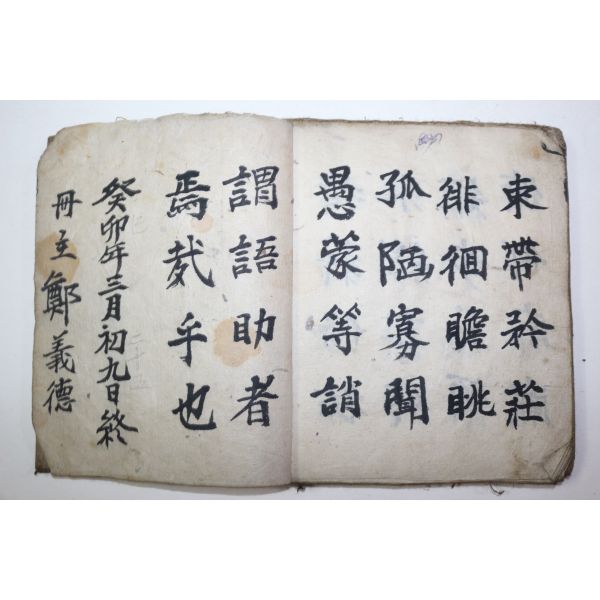 束帶矜莊
徘徊瞻眺
孤陋寡聞
愚蒙等誚
謂語助者
焉哉乎也
癸卯年三月初九日終
冊主鄭義德